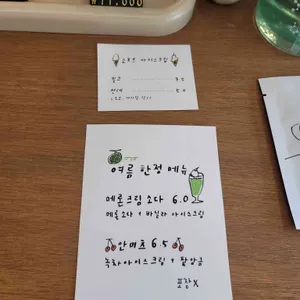 ₩11,000
소프트 아이스크림
여름 한정 메뉴
메론크림소다 6.0
메론소다 + 바닐라 아이스크림
안미츠 6.5
녹차아이스크림 + 팥앙금
포장 X